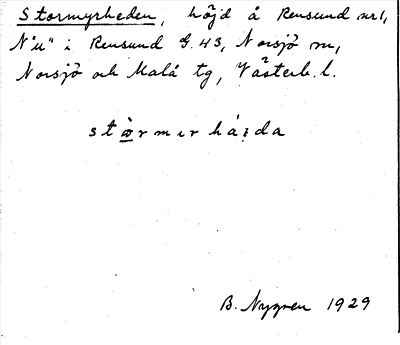 Stormyrheden, höjd å Rensund nr 1,
N "u" i Rensund G. 43, Norsjö sn,
Norsjö och Malå tg, Västerb. l.
B. Nygren 1929